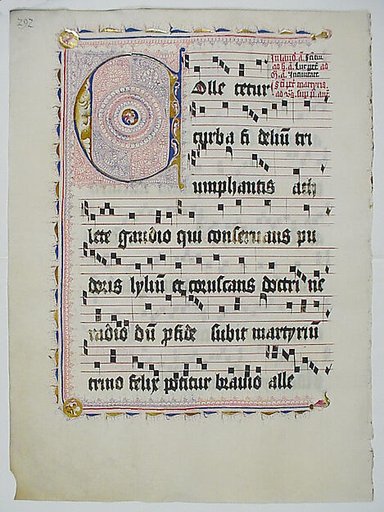 292
C olle tetur
turba fi deliū tri
umphantis ath
lete gaudio qui conseruans pu
doris lylium et coruscans doctri ne
radio dū p fide subit martyriū
trino felix potitur brauio alle